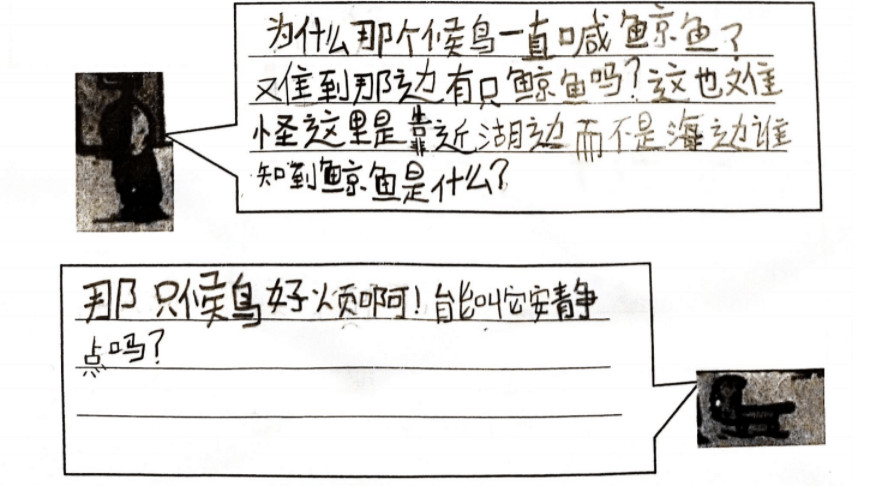 为什么那个候鸟一直喊鲸鱼？
难到那边有只鲸鱼吗？这也难
怪这里是靠近湖边而不是海边谁
知到鲸鱼是什么？
那只候鸟好烦啊！能叫它安静
点吗？